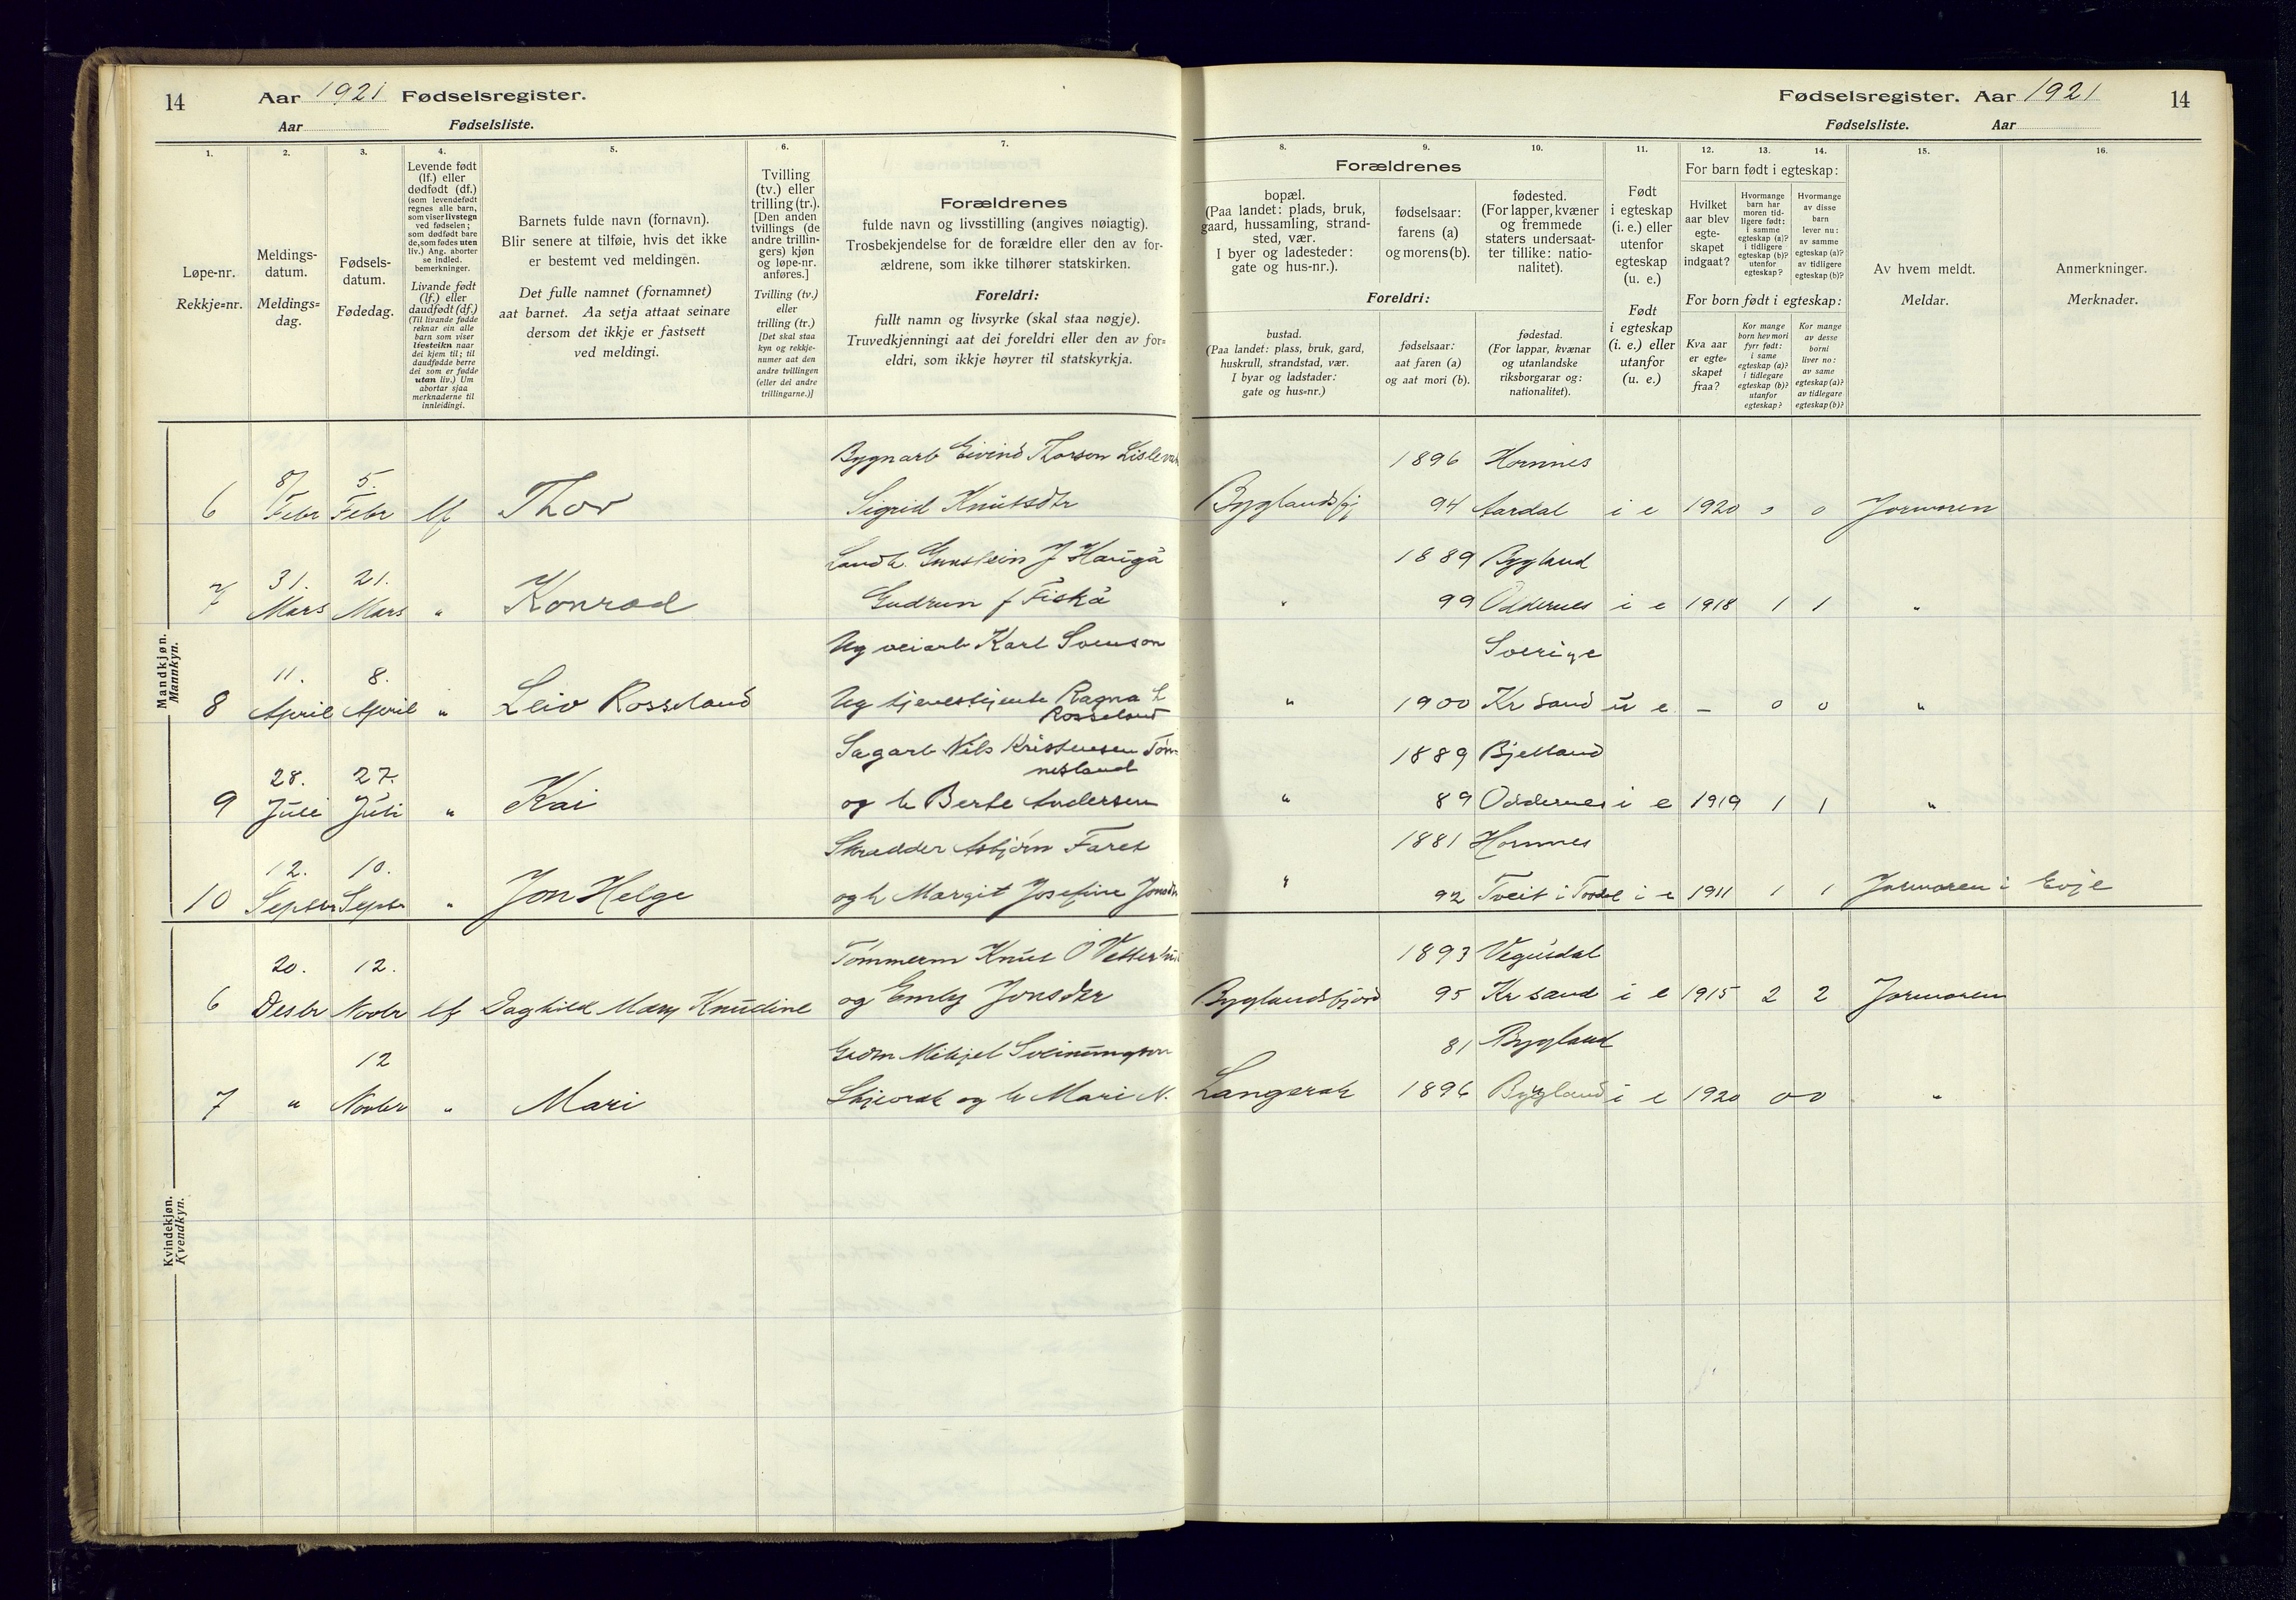 14 Aar 1921 Fødselsregister.
Aar Fødselsliste.
1. 2. 3. 4. 5. 6. 7.
Løpe-nr.
Rekkje=nr.
Meldings-
datum.
Meldings=
dag.
Fødsels-
datum.
Fødedag.
Levende født
(lf.) eller
dødfødt (df.)
(som levendefødt
regnes alle barn,
som viser livstegn
ved fødselen;
som dødfødt bare
de, som fødes uten
liv.) Ang. aborter
se indled.
bemerkninger.
Livande født
(lf.) eller
daudfødt (df.)
(Til livande fødde
reknar ein alle
barn som viser
livsteikn naar
dei kjem til; til
daudfødde berre
dei som er fødde
utan liv.) Um
abortar sjaa
merknaderne til
innleidingi.
Barnets fulde navn (fornavn).
Blir senere at tilføie, hvis det ikke
er bestemt ved meldingen.
Det fulle namnet (fornamnet)
aat barnet. Aa setja attaat seinare
dersom det ikkje er fastsett
ved meldingi.
Tvilling
(tv.) eller
trilling (tr.).
[Den anden
tvillings (de
andre trillin-
gers) kjøn
og løpe-nr.
anføres.]
Tvilling (tv.)
eller
trilling (tr.)
[Det skal staa
kyn og rekkje-
numer aat den
andre tvillingen
(eller dei andre
trillingarne.)]
Forældrenes
fulde navn og livsstilling (angives nøiagtig).
Trosbekjendelse for de forældre eller den av for-
ældrene, som ikke tilhører statskirken.
Foreldri:
fullt namn og livsyrke (skal staa nøgje).
Truvedkjenningi aat dei foreldri eller den av for=
eldri, som ikkje høyrer til statskyrkja.
Mandkjøn.
Mannkyn.
Bygnarb Eivind Thorson
8/ 5.
6 Febr Febr lf Thor Sigrid Knutsdtr
Gunstein J Haugå
31. 21.
7 Mars Mars " Konrad Gudrun f Fiskå
Ug veiarb Karl Svenson
11. 8.
8 April April " Leiv Rosseland Ug tjenestjente Ragna L
Rosseland
Sagarb Nils Kristensen Tøn
nesland
28. 27.
9 Juli Juli " Kai og h Berte Andersen
Skrædder Asbjørn Faret
12. 10.
10 Septbr Septbr " Jon Helge og h Margit Josefine Jonsdtr
Kvindekjøn.
Kvendkyn.
Tømmerm Knut O
20. 12.
6 Desbr Novbr lf Daghild Mary Knudine og Emly Jonsdtr
Grdm Mikjel
12
7 " Novbr " Mari Skjevrak og h Mari N.
Fødselsregister. Aar 1921 14
Fødselsliste. Aar
8. 9. 10. 11. 12. 13. 14. 15. 16.
Forældrenes
bopæl.
(Paa landet: plads, bruk,
gaard, hussamling, strand-
sted, vær.
I byer og ladesteder:
gate og hus-nr.).
fødselsaar:
farens (a)
og morens (b).
fødested.
(For lapper, kvæner
og fremmede
staters undersaat-
ter tillike: natio-
nalitet).
Foreldri:
bustad.
(Paa landet: plass, bruk, gard,
huskrull, strandstad, vær.
I byar og ladstader:
gate og hus=nr.)
fødselsaar:
aat faren (a)
og aat mori (b).
fødestad.
(For lappar, kvænar
og utanlandske
riksborgarar og:
nationalitet).
Født
i egteskap
(i. e.) eller
utenfor
egteskap
(u. e.)
Født
i egteskap
(i. e.) eller
utanfor
(u. e.)
For barn født i egteskap:
Hvilket
aar blev
egte-
skapet
indgaat?
Hvormange
barn har
moren tid-
ligere født:
i samme
egteskap (a)?
i tidligere
egteskap (b)?
utenfor
egteskap?
Hvormange
av disse
barn
lever nu:
av samme
egteskap (a)?
av tidligere
egteskap (b)?
For born født i egteskap:
Kva aar
er egte=
skapet
fraa?
Kor mange
born hev mori
fyrr født:
i same
egteskap (a)?
i tidlegare
egteskap (b)?
utanfor
egteskap?
Kor mange
av desse
borni
liver no:
av same
egteskap (a)?
av tidlegare
egteskap (b)?
Av hvem meldt.
Meldar.
Anmerkninger.
Merknader.
1896 Hornnes
Byglandsfj 94 Aardal i e 1920 0 0 Jormoren
1889 Bygland
" 99 Oddernes i e 1918 1 1 "
Sverige
" 1900 Kr sand u e – 0 0 "
1889 Bjelland
" 89 Oddernes i e 1919 1 1 "
1881 Hornnes
" 92 Tveit i Tovdal i e 1911 1 1 Jormoren i Evje
1893 Vegusdal
Byglandsfjord 95 Kr sand i e 1915 2 2 Jormoren
81 Bygland
Langerak 1896 Bygland i e 1920 0 0 "